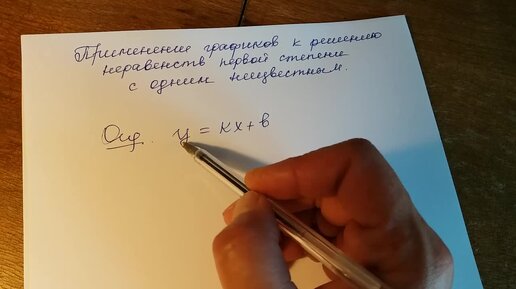 Применение графиков к решению
неравенств первой степени
с одним неизвестным.
Опр. y = kx + b